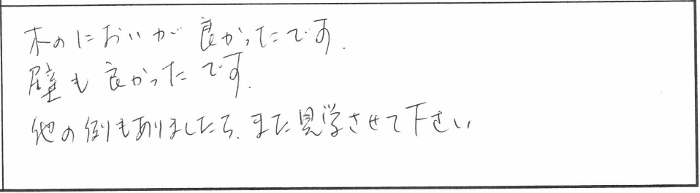 木のにおいが良かったです.
壁も良かったです.
他の例もありましたら、また見学させて下さい